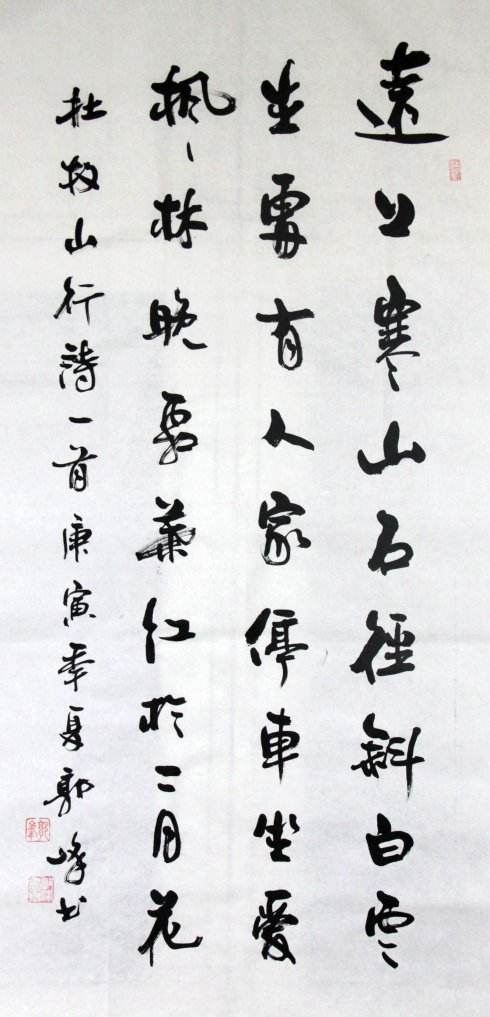 遠上寒山石徑斜白雲
生處有人家停車坐愛
楓、林晚霜葉紅於二月花
杜牧山行詩一首庚寅年夏郭峰书